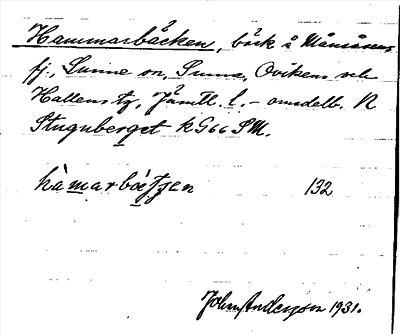 Hammarbäcken, bäck å Månsåsens
fj., Sunne sn, Sunne, Ovikens och
Hallens tg, Jämtl. l. - omedelb. N
Stuguberget k G66 SM.
hàmarbä̀tjen 132
John Anderson 1931.